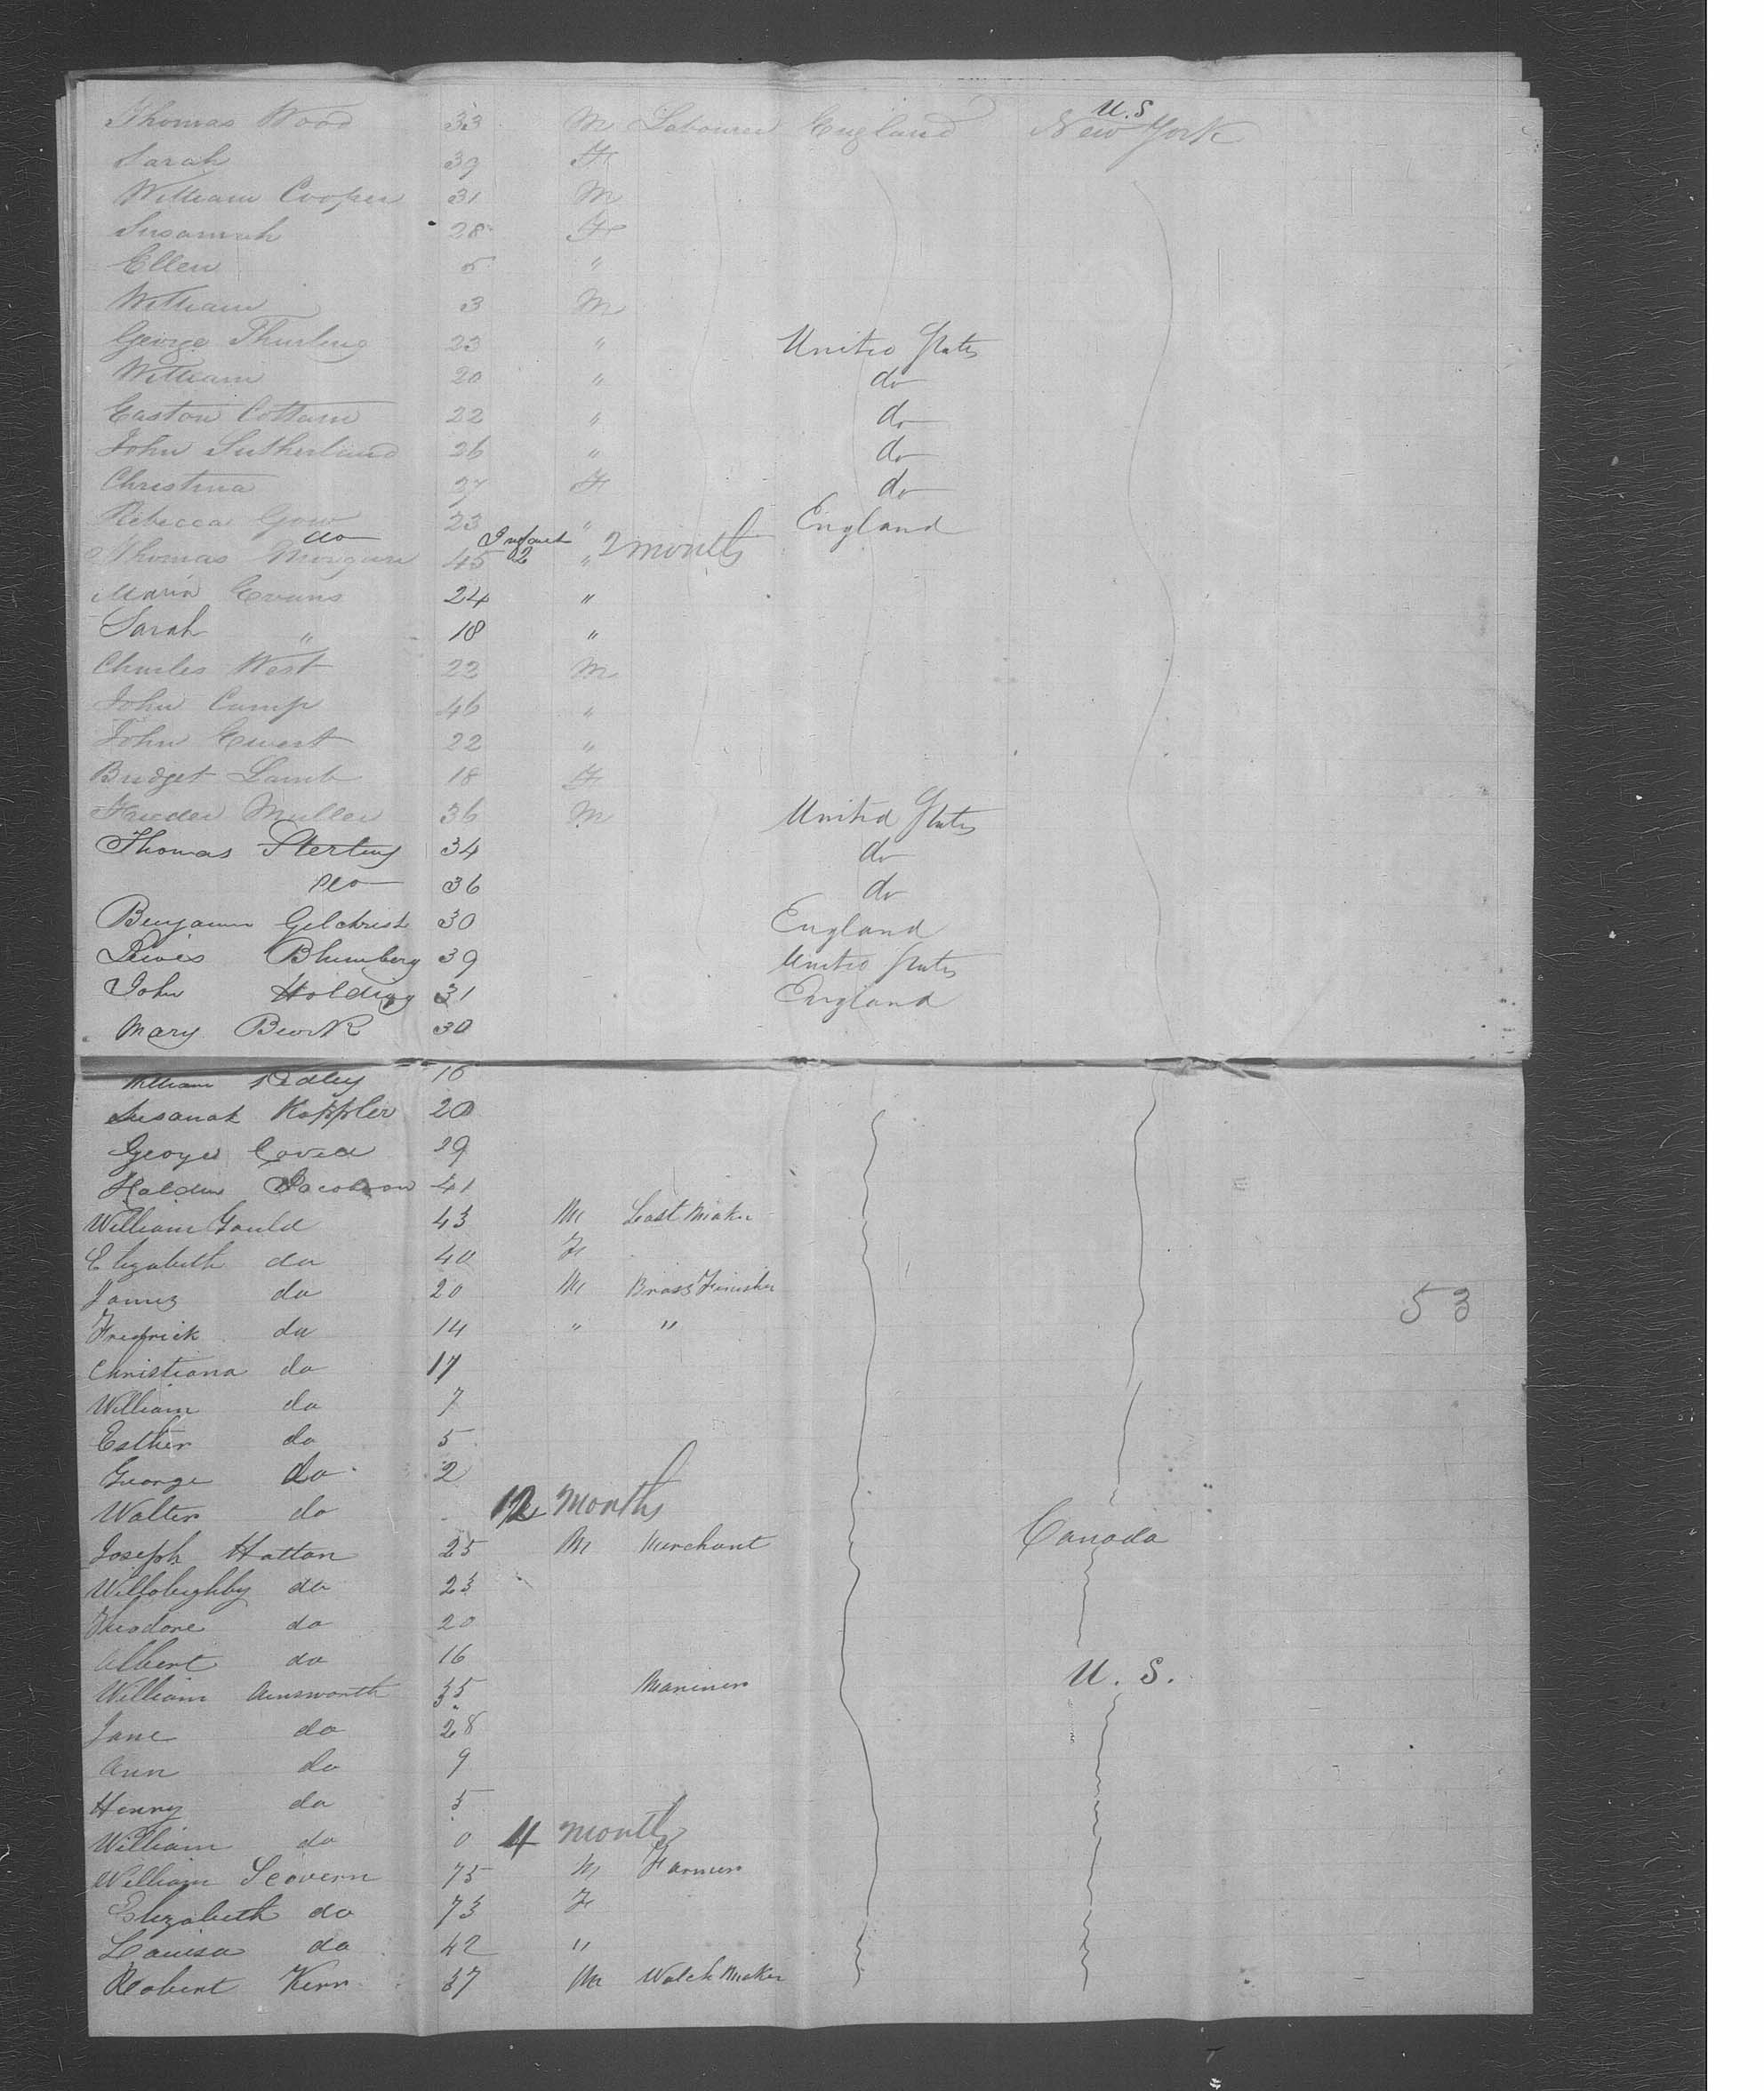 U.S
Thomas Wood 33 M Labourer England New York
Sarah 39 F
William Cooper 31 M
Susannah 28 F
Ellen 5 "
William 3 M
George Thurling 23 " United States
William 20 " do
Easton Cottam 22 " do
John Sutherland 26 " do
Christina 27 F do
Rebecca Gow 23 " England
do Infant 2 2 months
Thomas Morgan 45 "
Maria Evans 24 "
Sarah " 18 "
Charles West 22 M
John Camp 46 "
John Ewert 22 "
Bridget Lamb 18 F
Muller 36 M United States
Thomas Sterling 34 do
do 36 do
Benjamin Gilchrist 30 England
Lewis Blumberg 39 United States
John Holding 31 England
Mary 30
William Ridley 16
Susanah Koppler 20
George 29
Jacobson 41
William Gould 43 M Last Maker
Elizabeth do 40 F
James do 20 M Brass Finisher
Fredrick do 14 " "
Christiana do 17
William do 7
Esther do 5
George do 2
Walter do 12 Months
Joseph Hatton 25 M Merchant Canada
Willoughby do 23
Theodore do 20
Albert do 16
William Ainsworth 35 Mariner U.S.
Jane do 28
Ann do 9
Henry do 5
William do 0 4 month
William Scovern 75 M Farmer
Elizabeth do 73 F
Louisa do 42 "
Robert Kerr 37 M Watch Maker
53